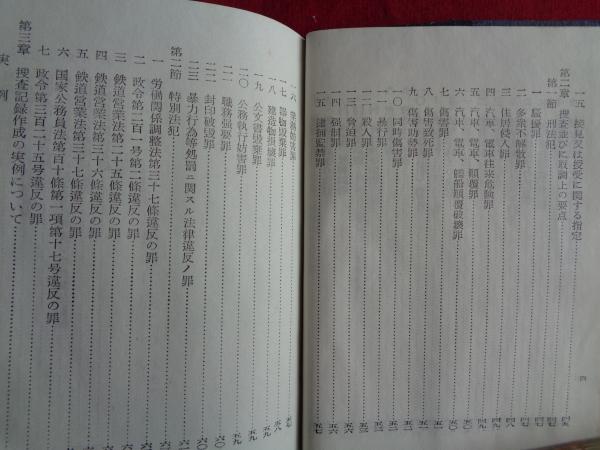 一五 接見又は授受に関する指定……四五
第二章 捜査並びに取調上の要点……四七
第一節 刑法犯……四七
一 騒擾罪……四七
二 多衆不解散罪……四八
三 住居侵入罪……四八
四 汽車、電車往来危険罪……四九
五 汽車、電車、顛覆罪……四九
六 汽車、電車、艦船顛覆破壊罪……五〇
七 傷害罪……五〇
八 傷害致死罪……五一
九 傷害助勢罪……五二
一〇 同時傷害罪……五二
一一 暴行罪
一二 殺人罪
一三 脅迫罪……五六
一四 強制罪……五六
一五 逮捕監禁罪……五七
四
一六 業務妨害罪……五七
一七 器物毀棄罪……五八
一八 建造物損壊罪……五九
一九 公文書毀棄罪……五九
二〇 公務執行妨害罪……五九
二一 職務強要罪……六〇
二二 封印破毀罪……六〇
二三 暴力行為等処罰ニ関スル法律違反ノ罪
第二節 特別法犯
一 労働関係調整法第三十七條違反の罪
二 政令第二百一号第二條違反の罪
三 鉄道営業法第二十五條違反の罪
四 鉄道営業法第三十六條違反の罪
五 鉄道営業法第三十七條違反の罪
六 国家公務員法第百十條第一項第十七号違反の罪
七 政令第三百二十五号違反の罪
第三章 捜査記録作成の実例について
実例